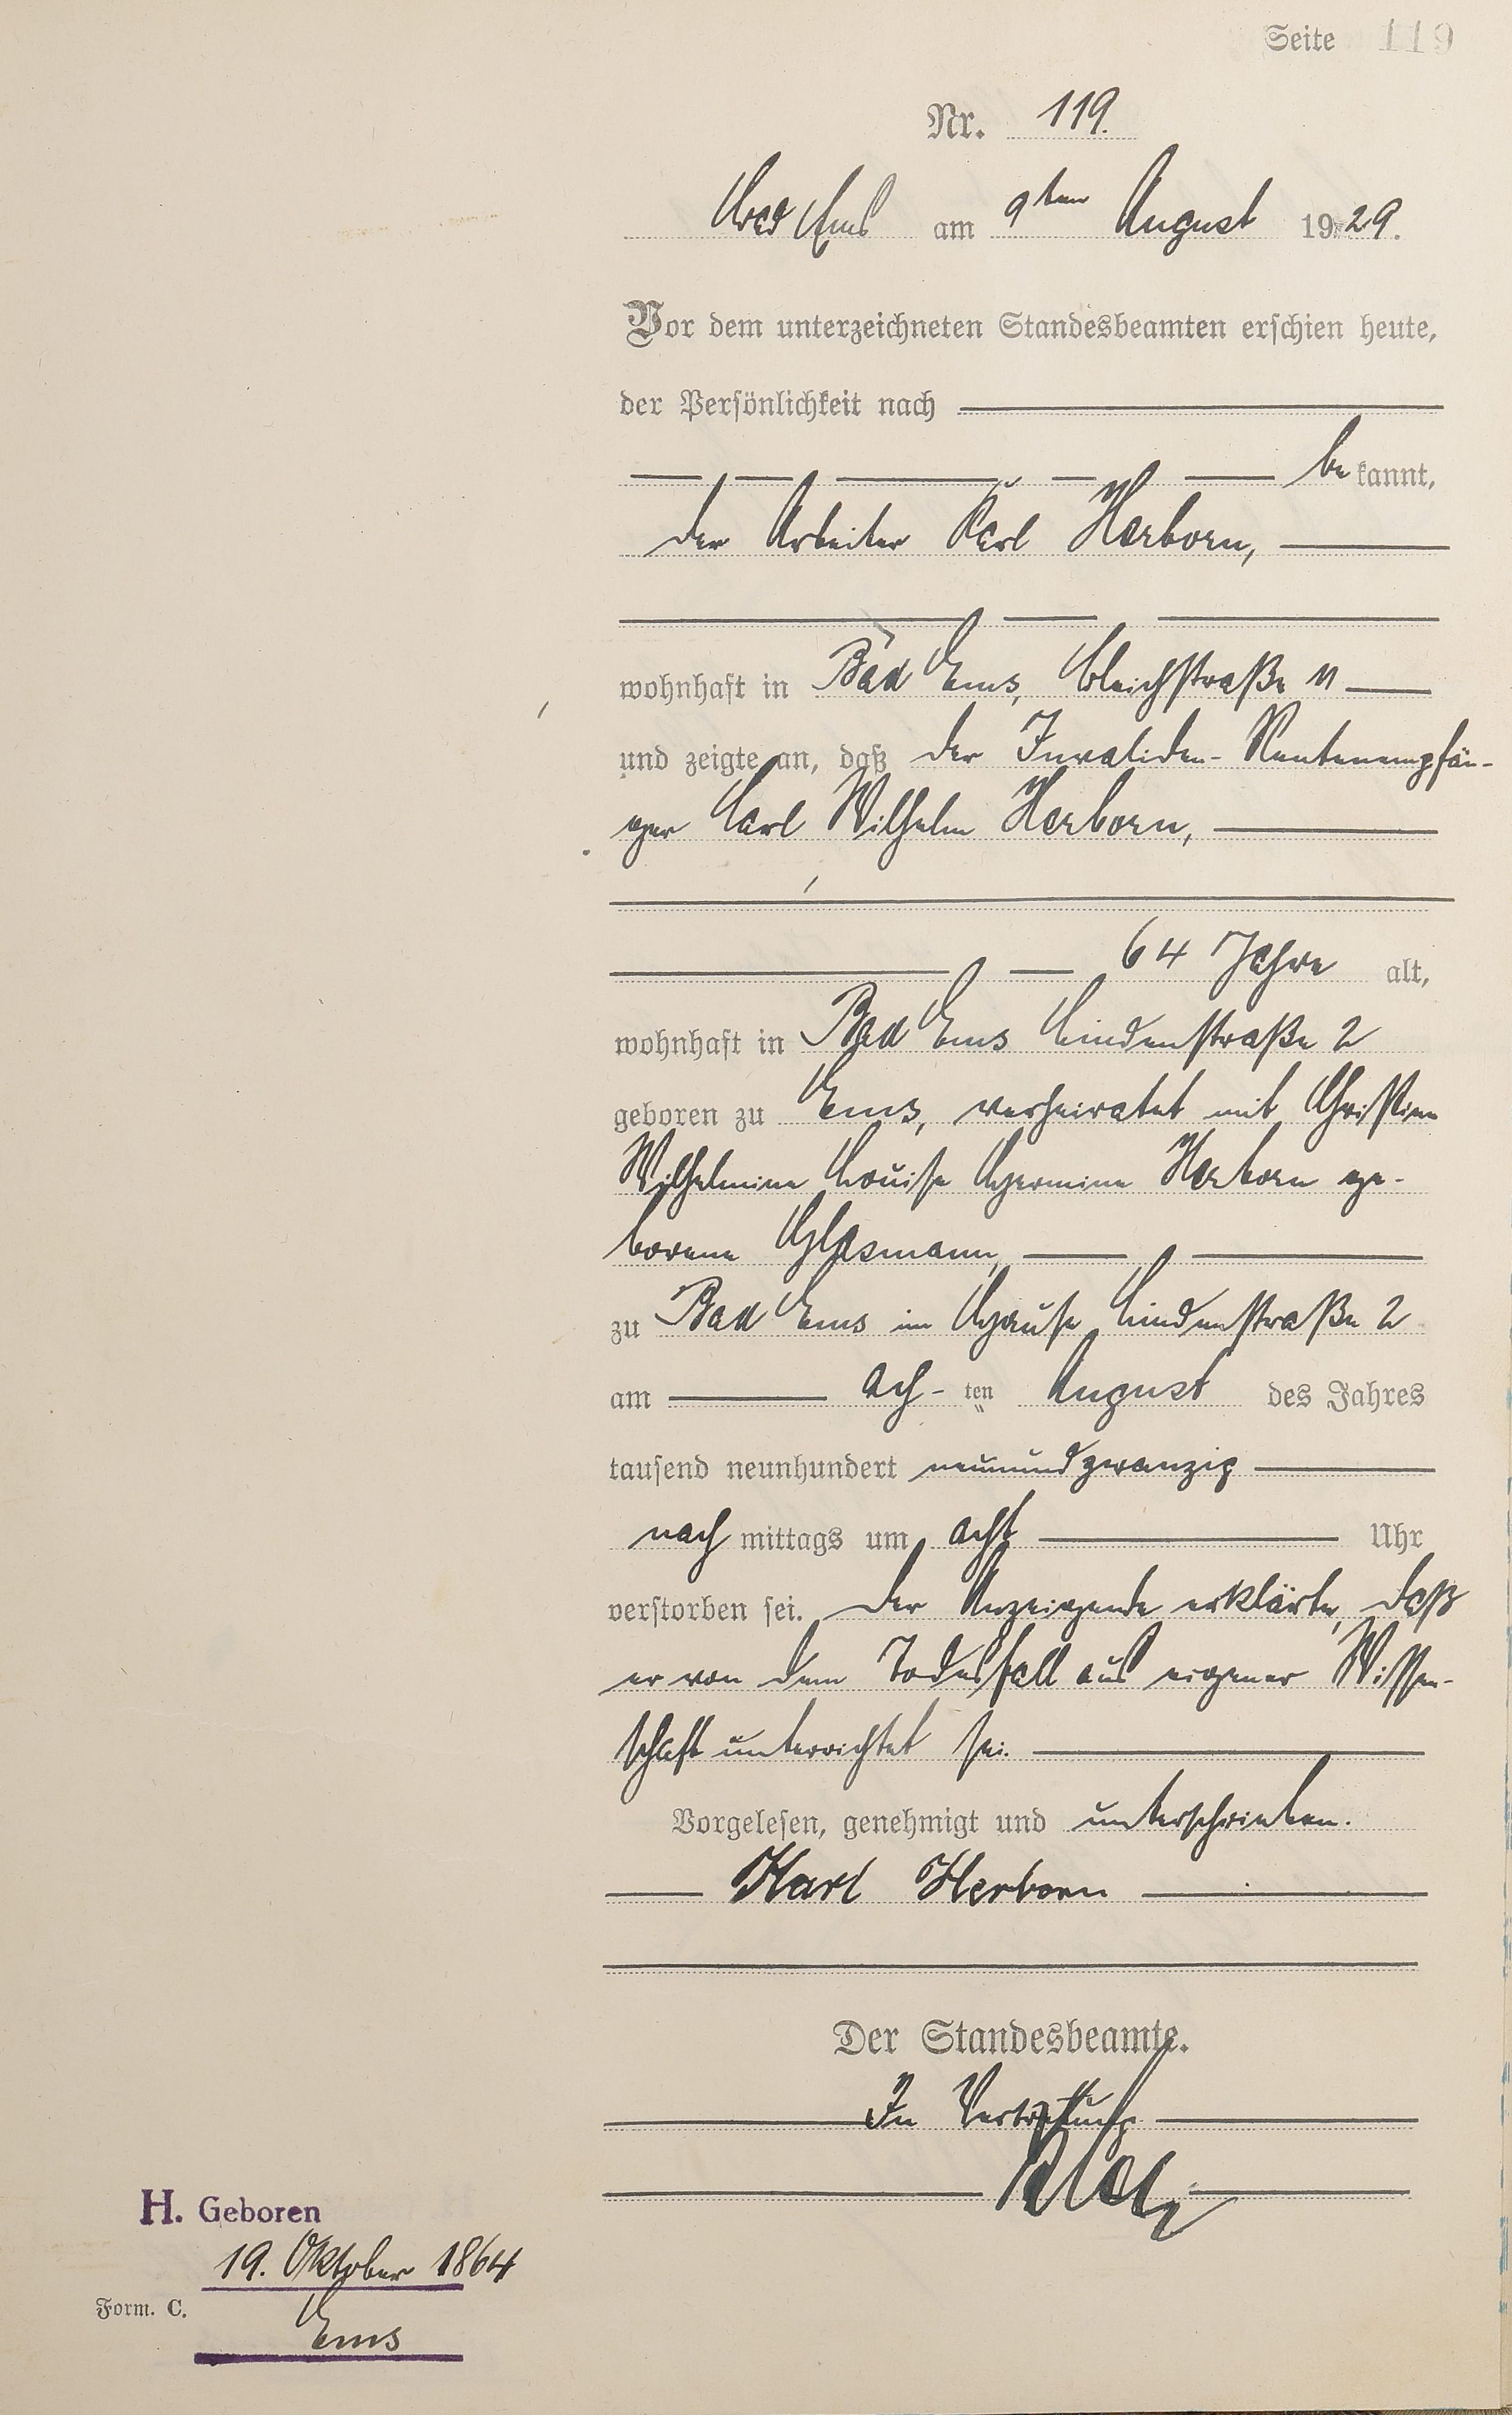 Seite 119
Nr. 119.
Bad Ems am 9ten August 1929.
Vor dem unterzeichneten Standesbeamten erschien heute,
der Persönlichkeit nach
be kannt,
der Arbeiter Karl Herborn,
wohnhaft in Bad Ems, Bleichstraße 11
und zeigte an, daß der Invaliden-Rentenempfän-
ger Carl Wilhelm Herborn,
64 Jahre alt,
wohnhaft in Bad Ems Lindenstraße 2
geboren zu Ems, verheiratet mit Christine
Wilhelmine Louise Hermine Herborn ge-
borene Glasmann,
zu Bad Ems im Hause Lindenstraße 2
am ach-ten August des Jahres
tausend neunhundert neunundzwanzig
nach mittags um acht Uhr
verstorben sei. Der Anzeigende erklärte, daß
er von dem Todesfall aus eigener Wissen-
schaft unterrichtet sei.
Vorgelesen, genehmigt und unterschrieben.
Karl Herborn
Der Standesbeamte.
In Vertretung
H. Geboren
19. Oktober 1864
Form. C.
Ems